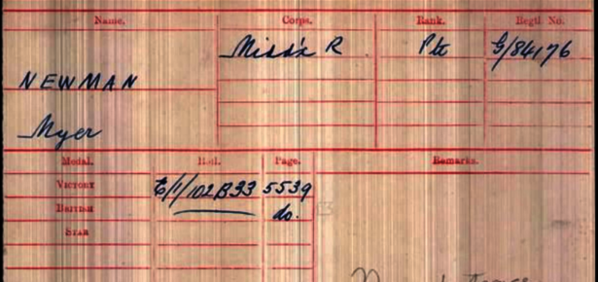 Name. Corps. Rank. Regtl. No.
Midd'x R Pte G/84176
NEWMAN
Myer
Medal. Roll. Page. Remarks.
VICTORY E/1/102B33 5539
BRITISH do.
STAR